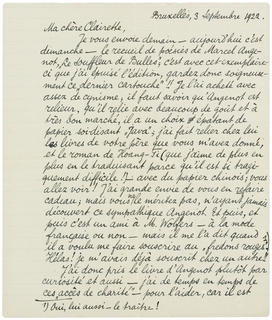 Bruxelles, 3 Septembre 1922.
Ma chère Clairette,
Je vous envoie demain — aujourd'hui c'est
dimanche — le recueil de poèmes de Marcel Ange-
not, "Le Souffleur de Bulles", c'est avec cet exemplaire-
ci que j'ai épuisé l'édition, gardez donc soigneuse-
ment ce "dernier cartouche"!! Je l'ai acheté avec
assez de cynisme; il faut savoir qu'Angenot est
relieur, qu'il relie avec beaucoup de goût et à
très bon marché, il a un choix épatant de
papier soi-disant "Java"; j'ai fait relier chez lui
les livres de votre père que vous m'avez donné,
et le roman de Tsoang-Tsi (que j'aime de plus en
plus en le traduisant parce qu'il est si tragi-
quement difficile!) — avec du papier chinois; vous
allez voir! J'ai grande envie de vous en refaire
cadeau; mais vous le méritez pas, n'ayant jamais
découvert ce sympathique Angenot. Et puis, et
puis c'est un ami à M. Wolfers — à la mode
française ou non — mais il me l'a dit quand
il a voulu me faire souscrire au "fredons rouges".
Hélas! je m'avais déjà souscrit chez un autre!
J'ai donc pris le livre d'Angenot plutôt par
curiosité et aussi — j'ai de temps en temps de
ces accès de charité¹) — pour l'aider, car il est
¹) Oui, lui aussi — le traître!